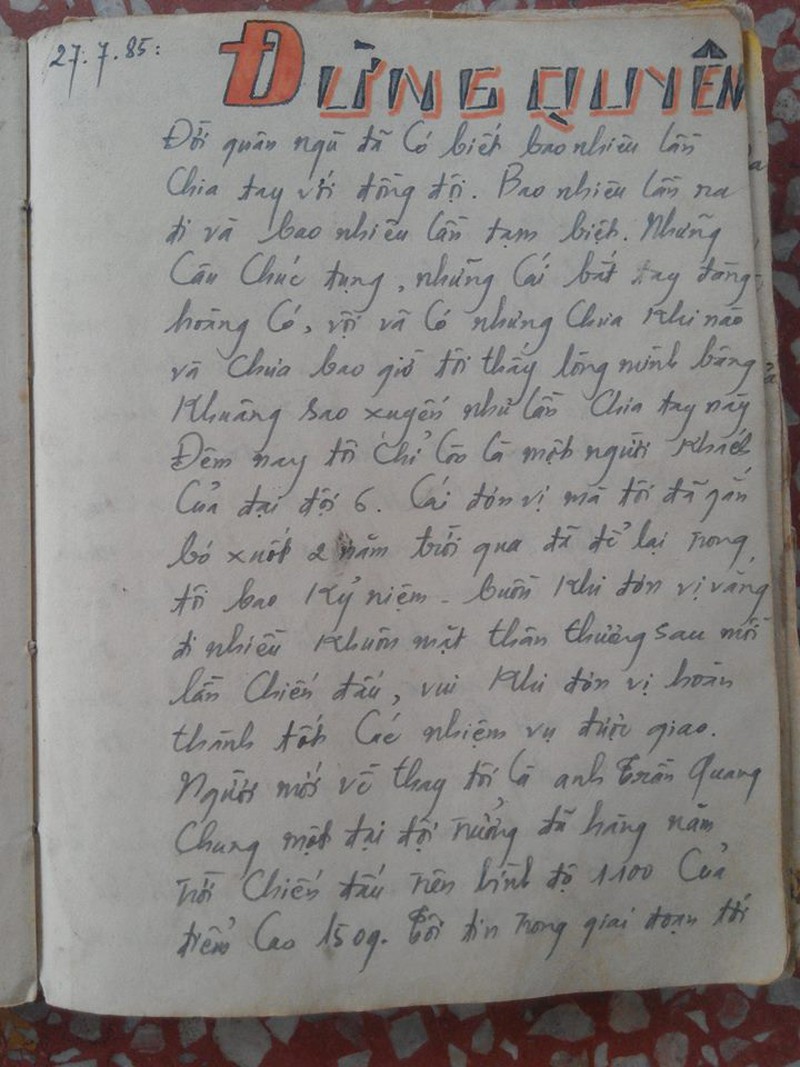 27.7.85:
ĐỪNG QUYÊN
Đời quân ngũ đã có biết bao nhiêu lần
chia tay với đồng đội. Bao nhiêu lần ra
đi và bao nhiêu lần tạm biệt. Những
câu chúc tụng, những cái bắt tay đàng
hoàng có, vội vã có nhưng chưa khi nào
và chưa bao giờ tôi thấy lòng mình bâng
khuâng sao xuyến như lần chia tay này
Đêm nay tôi chỉ còn là một người khách
của đại đội 6. Cái đơn vị mà tôi đã gắn
bó xuốt 2 năm trời qua đã để lại trong
tôi bao kỷ niệm - buồn khi đơn vị vắng
đi nhiều khuôn mặt thân thương sau mỗi
lần chiến đấu, vui khi đơn vị hoàn
thành tốt các nhiệm vụ được giao.
Người mới về thay tôi là anh Trần Quang
Chung một đại đội trưởng đã hàng năm
trời chiến đấu trên bình độ 1100 của
điểm cao 1509. Tôi tin trong giai đoạn tới